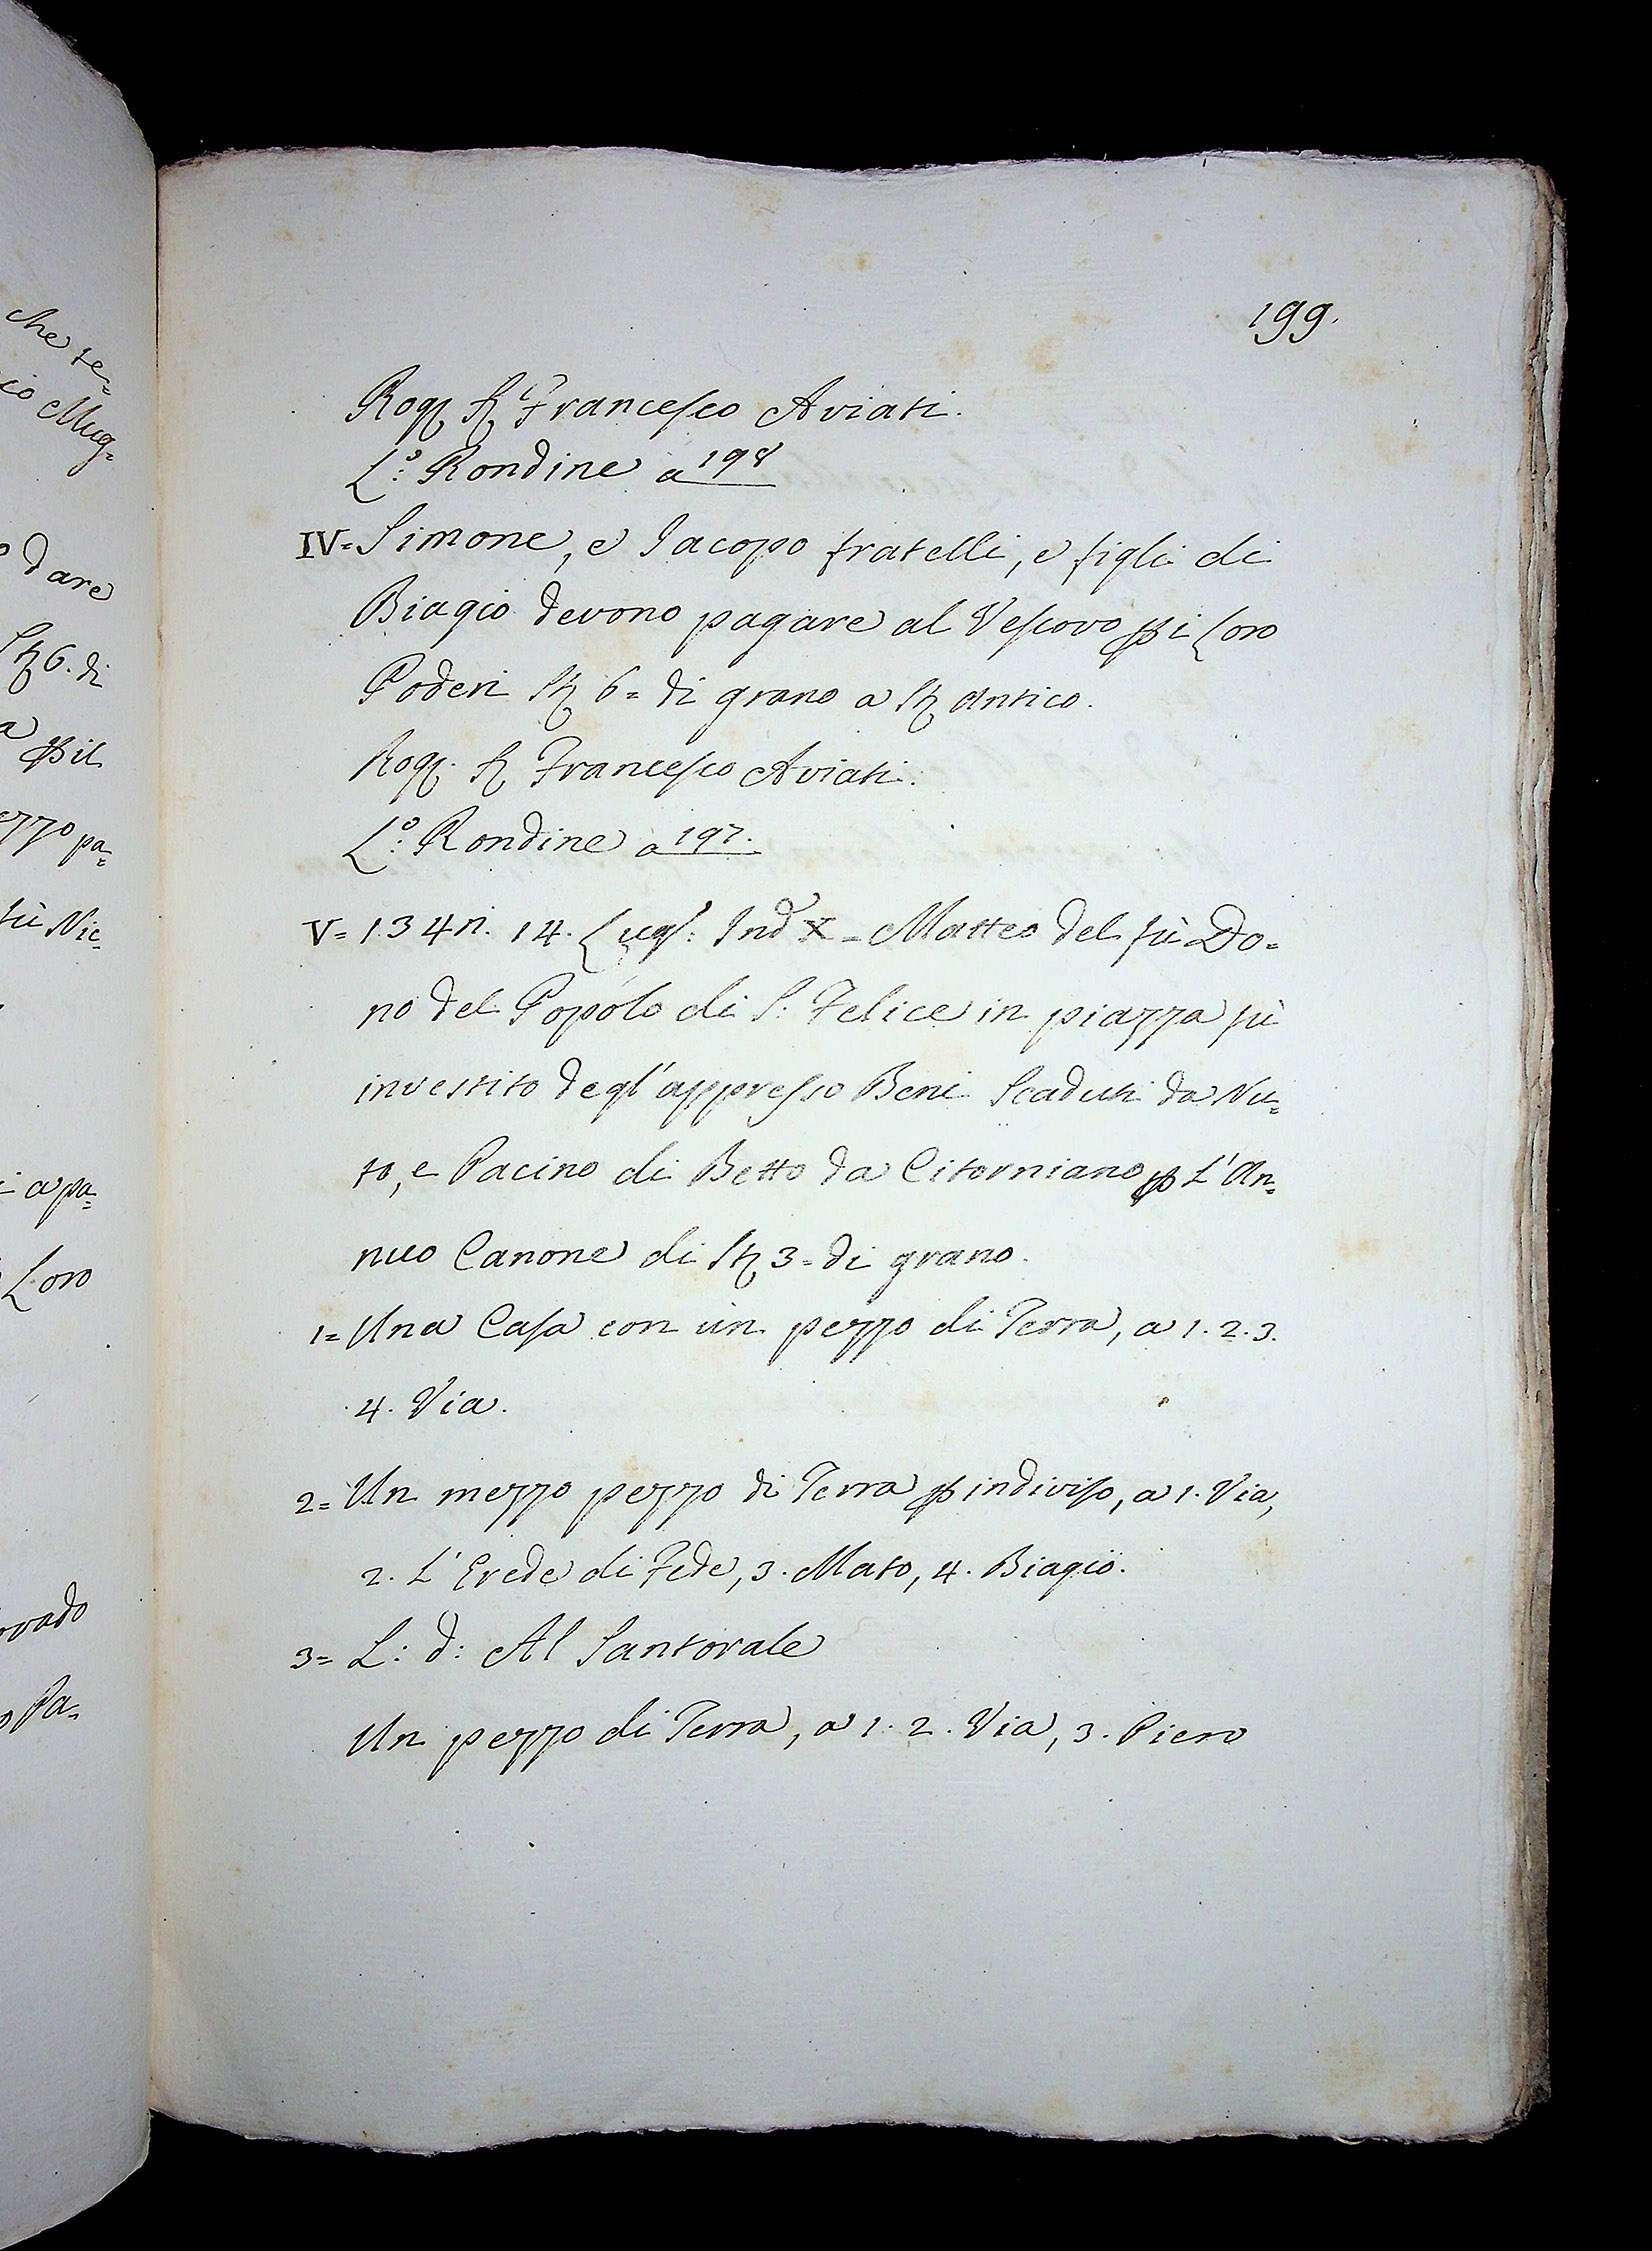 che te=
io Mug=
o dare
St 6. di
a p il
ezzo pa=
fù Nic=
i a pa=
Loro
ovado
o Pa=
199.
Rog. S. Francesco Aviati.
L.° Rondine a 198
IV= Simone, e Jacopo fratelli, e figli di
Biagio devono pagare al Vescovo p i Loro
Poderi St 6= di grano a St antico.
Rog. S. Francesco Aviati.
L.° Rondine a 197.
V= 134n. 14. Lug.: Ind X = Matteo del fù Do=
no del Popolo di S: Felice in piazza fù
investito degl'appresso Beni Scaduti da Nu=
to, e Pacino di Betto da Citorniano p L'An=
nuo Canone di St 3= di grano.
1= Una Casa con un pezzo di Terra, a 1. 2. 3.
4. Via.
2= Un mezzo pezzo di Terra p indiviso, a 1. Via,
2. L'Erede di Fede, 3. Mato, 4. Biagio.
3= L: d: Al Santorale
Un pezzo di Terra, a 1. 2. Via, 3. Piero